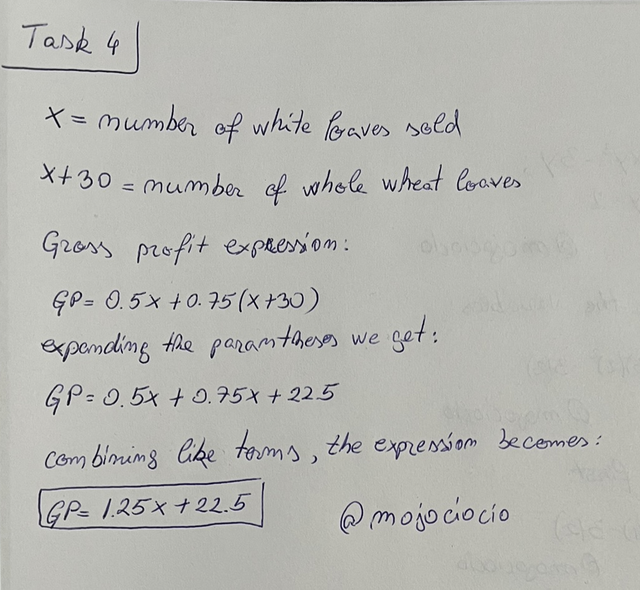 Task 4
x = number of white loaves sold
x+30 = number of whole wheat loaves
Gross profit expression:
GP= 0.5x + 0.75(x+30)
expanding the parantheses we get:
GP= 0.5x + 0.75x + 22.5
combining like terms, the expression becomes:
GP= 1.25x + 22.5
@mojociocio